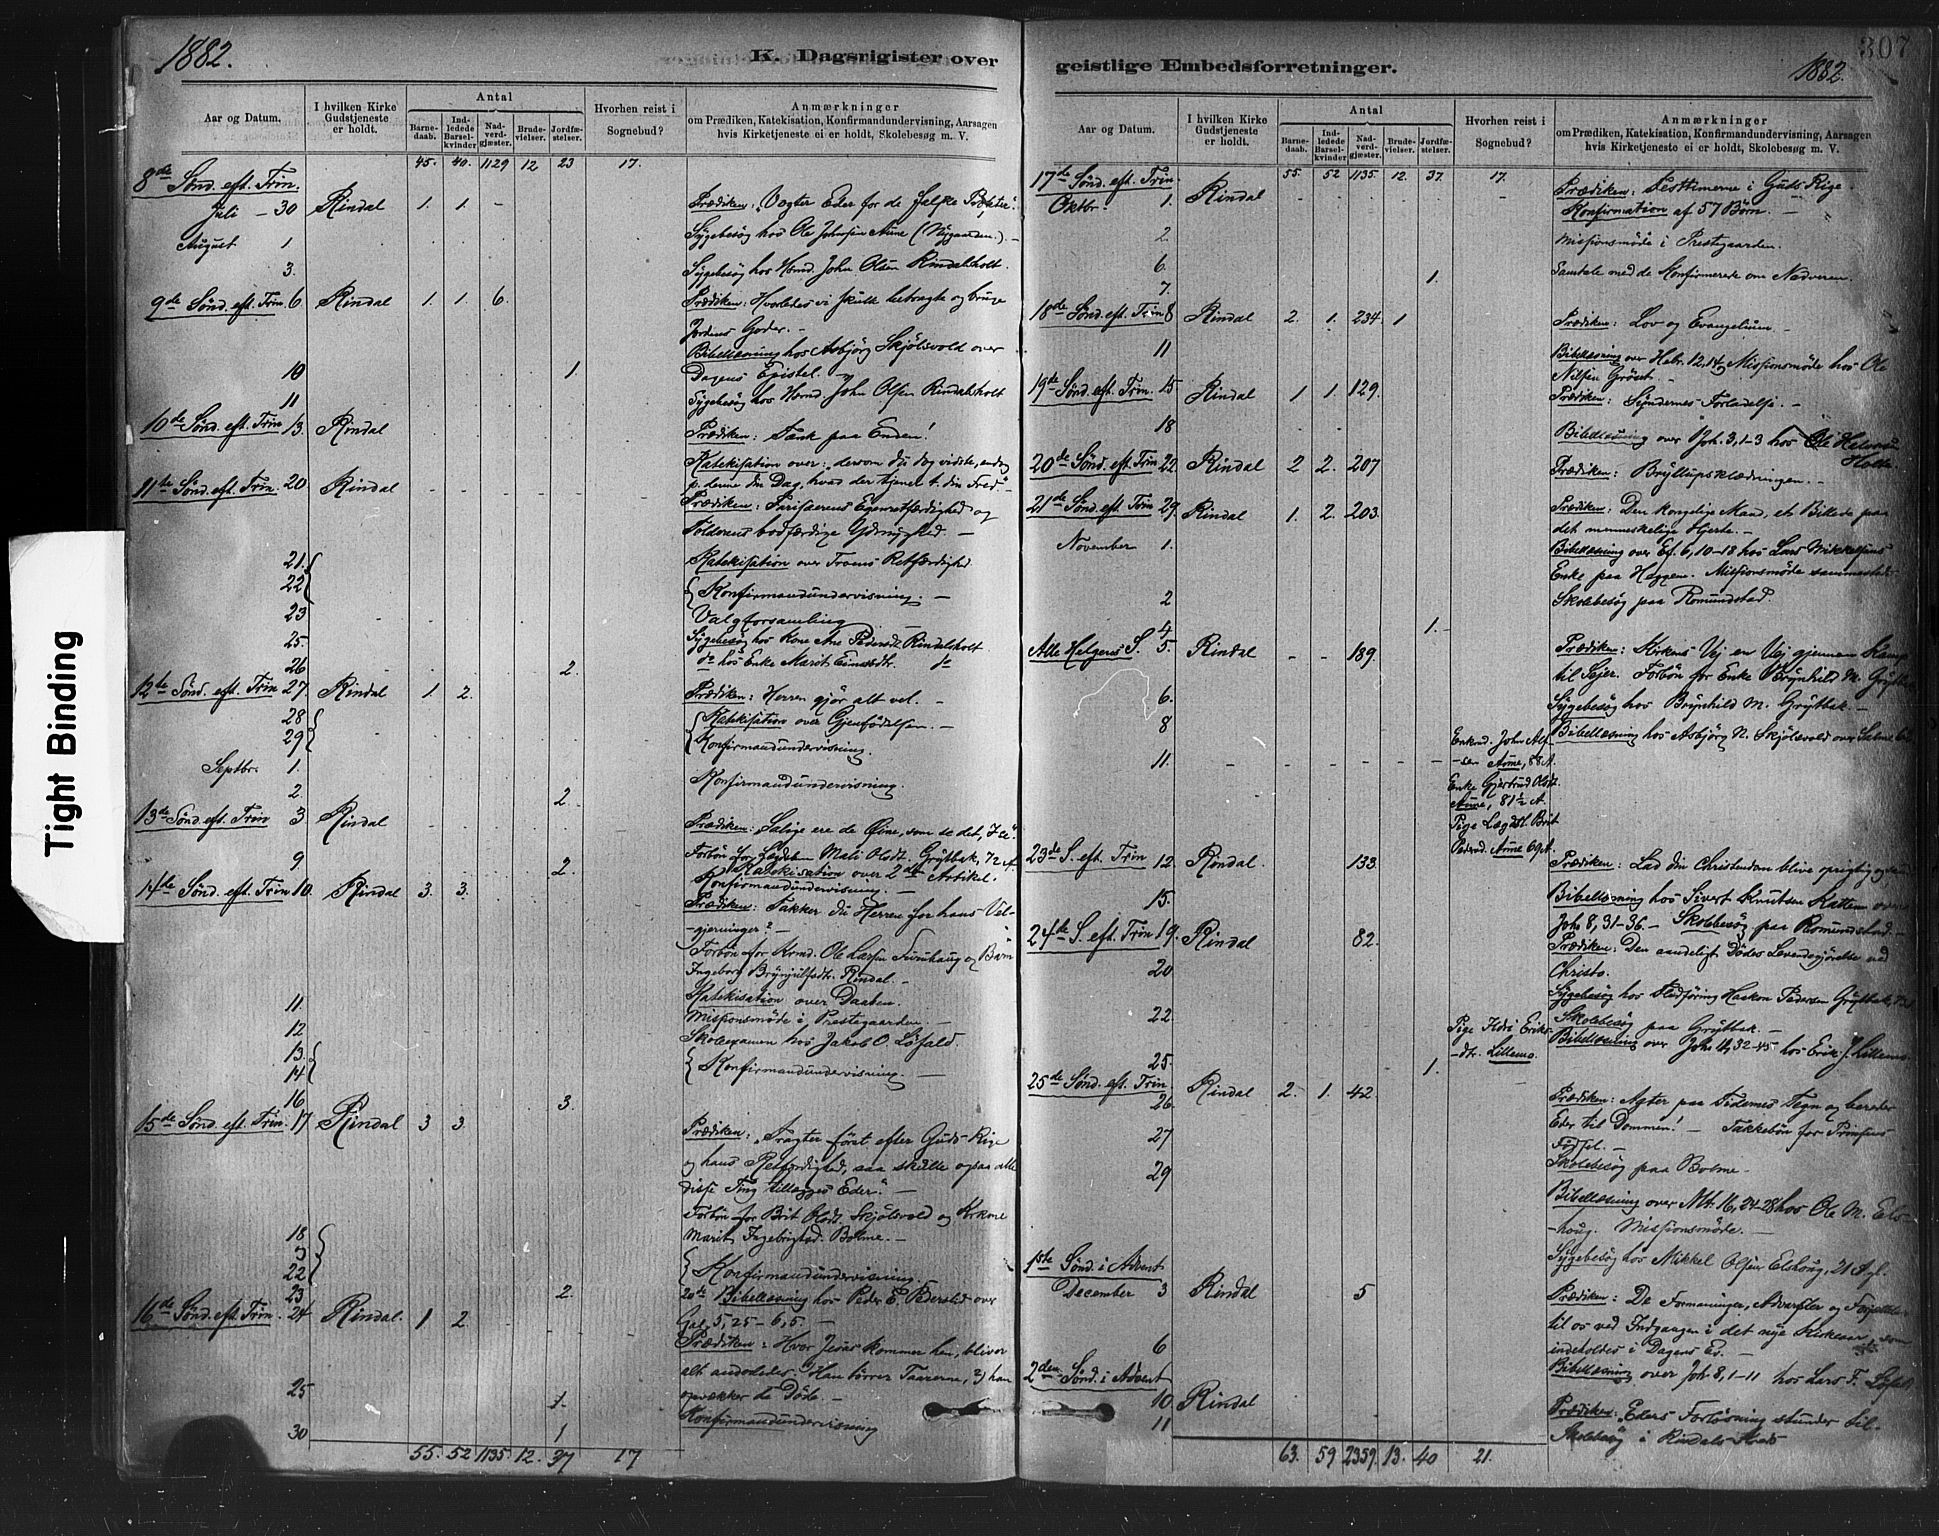 1882.
K. Dagsrigister over
Aar og Datum.
I hvilken Kirke Gudstjeneste er holdt.
Antal
Barne-daab.
Ind-ledede Barsel-kvinder
Nad-verd-gjæster.
Brude-vielser.
Jordfæ-stelser.
Hvorhen reist i Sognebud?
Anmærkninger
om Prædiken, Katekisation, Konfirmandundervisning, Aarsagen
hvis Kirketjeneste ei er holdt, Skolebesøg m. V.
45. 40. 1129 12 23 17.
8de Sønd. eft. Trin.
Juli - 30 Rindal 1. 1. - Prædiken: "Vogter Eder for de falske Profeter".
August 1 Sygebesøg hos Ole Johnsen Aune (Nygaarden). -
3. Sygebesøg hos Kmd. John Olsen Rindalsholt.
9de Sønd. eft. Trin. 6. Rindal 1. 1. 6. Prædiken: Hvorledes vi skulle betragte og bruge
Jordens Goder. -
Bibellæsning hos Asbjørg Skjølsvold over
10 1. Dagens Epistel. -
11 Sygebesøg hos Kmd. John Olsen Rindalsholt
10de Sønd. eft. Trin 13. Rindal Prædiken: Tænk paa Enden!
Katekisation over: "dersom du dog vidste, endog
11te Sønd. eft. Trin. 20 Rindal p. denne din Dag, hvad der tjener t. din Fred." -
Prædiken: Farisæerens Egenretfærdighed og
Tolderens bodfærdige Ydmyghed. -
21. Katekisation over Troens Retfærdighed
22 Konfirmandundervisning. -
23 Valgforsamling
25 Sygebesøg hos Kone Ane Pedersdt. Rindalsholt
26 2. do hos Enke Marit do
12te Sønd. eft. Trin 27. Rindal 1. 2. Prædiken: Herren gjør alt vel. -
28 Katekisation over Gjenfødelsen. -
29 Konfirmandundervisning.
Septbr. 1. Konfirmandundervisning.
2. 2.
13de Sønd. eft. Trin 3 Rindal Prædiken: "Salige ere de Øine, som se det, I se".
Forbøn for Lægdslem Mali Olsdt. Grytbak, 72 A.
9 2. Katekisation over 2den Artikel.
14de Sønd. eft. Trin 10. Rindal 3. 3. Konfirmandundervisning. -
Prædiken: Takker du Herren for hans Vel-
-gjerninger? -
Forbøn for Kmd. Ole Larsen og Barn
Ingeborg Brynjulfsdtr. Rindal. -
11. Katekisation over Daaben.
Missionsmøde i Prestegaarden. -
12 Skoleexamen hos Jakob O. Løfald.
13. Konfirmandundervisning. -
14
16 3.
15de Sønd. eft. Trin. 17 Rindal 3 3. Prædiken: "Tragter først efter Guds Rige
og hans Retfærdighed, saa skulle ogsaa alle
disse Ting tillægges Eder". -
Forbøn for Brit Olsdt. Skjølsvold og
18 Marit Ingebrigtsd. Bolme. -
22 Konfirmandundervisning.
23 2. 20de Bibellæsning hos Peder E. over
16de Sønd. eft. Trin. 24 Rindal. 1 2. Gal. 5, 25 - 6, 5. -
Prædiken: Hvor Jesus kommer hen, bliver
alt anderledes. Han tørrer Taarerne, 2) han
25 1. opvækker de Døde. -
Konfirmandundervisning
30 1
55. 52 1135. 12. 37 17
307
1882.
geistlige Embedsforretninger.
Aar og Datum.
I hvilken Kirke Gudstjeneste er holdt.
Antal
Barne-daab.
Ind-ledede Barsel-kvinder
Nad-verd-gjæster.
Brude-vielser.
Jordfæ-stelser.
Hvorhen reist i Sognebud?
Anmærkninger
om Prædiken, Katekisation, Konfirmandundervisning, Aarsagen
hvis Kirketjeneste ei er holdt, Skolebesøg m. V.
55. 52 1135. 12. 37. 17.
17de Sønd. eft. Trin. Prædiken: Festtimerne i Guds Rige.
Oktbr. 1. Rindal Konfirmation af 57 Børn. -
2. Missionsmøde i Prestegaarden.
6. 1. Samtale med de Konfirmerede om Nadveren.
7.
18de Sønd. eft. Trin 8 Rindal 2. 1. 234. 1 Prædiken: Lov og Evangelium. -
11 Bibellæsning over Hebr. 12, 14. Missionsmøde hos Ole
Nilsen Grøset. -
19de Sønd. eft. Trin. 15 Rindal 1 1. 129. Prædiken: Syndernes Forladelse. -
18 Bibellæsning over Joh. 3, 1-3 hos Ole Halvorsen
Holte.
20de Sønd. eft. Trin 22 Rindal 2 2. 207 Prædiken: Bryllupsklædningen. -
21de Sønd. eft. Trin 29. Rindal 1. 2. 203. Prædiken: Den kongelige Mand, et Billede paa
det menneskelige Hjerte. -
November 1. Bibellæsning over Ef. 6, 10-18 hos Lars Mikkelsens
Enke paa Heggen. Missionsmøde sammesteds.
2 Skolebesøg paa Romundstad.
4 1.
Alle Helgens S. 5. Rindal - - 189. Prædiken: Kirkens Vej en Vej gjennem Kamp
til Sejer. Forbøn for Enke Brynhild M. Grytbak
6. Sygebesøg hos Brynhild M. Grytbak. -
8 Bibellæsning hos Asbjørg N. Skjølsvold over Salme
11. Enkmd. John -sen Aune, 88 A.
Enke Gjertrud Olsdt. Aune, 81 1/2 A.
Pige Lægdsl. Brit Pedersd. Aune 69 A.
23de S. eft. Trin 12 Rindal. 133 Prædiken: Lad din Christendom blive oprigtig og
15. Bibellæsning hos Sivert Knutsen over
Joh. 8, 31-36. - Skolebesøg paa Romundstad. -
24de S. eft. Trin 19. Rindal 82. Prædiken: Den aandeligt Dødes Levendegjørelse ved
Christo.
20 Sygebesøg hos Haakon Pedersen Grytbak,
22. Pige Eriks-dtr. Lillemo. Skolebesøg paa Grytbak. -
Bibellæsning over Joh. 11, 32-45 hos Erik J. Lillemo.
25. 1.
25de Sønd. eft. Trin. 26. Rindal 2. 1. 42. Prædiken: Agter paa Tidernes Tegn og bereder
Eder til Dommen! - Takkebøn for Prinsens
Fødsel. -
27 Skolebesøg paa Bolme. -
29 Bibellæsning over Mth. 16, 24-28 hos Ole M. Els-
-houg. Missionsmøde. -
Sygebesøg hos Mikkel Olsen Elshoug, 21 A gl.
1ste Sønd. i Advent
December 3 Rindal 5 Prædiken: De Formaninger, Advarsler og Forjættelser
til os ved Indgangen i det nye Kirkeaar, som
indeholdes i Dagens Ev. -
6 Bibellæsning over Joh. 8, 1-11 hos Lars F. Løfald.
2den Sønd. i Advent
10 Rindal Prædiken: Eders Forløsning stunder til.
11 Skolebesøg i Rindals
63. 59 2359. 13. 40 21.
Tight Binding